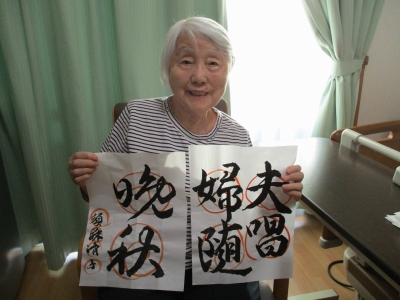 夫唱
婦随
晩秋